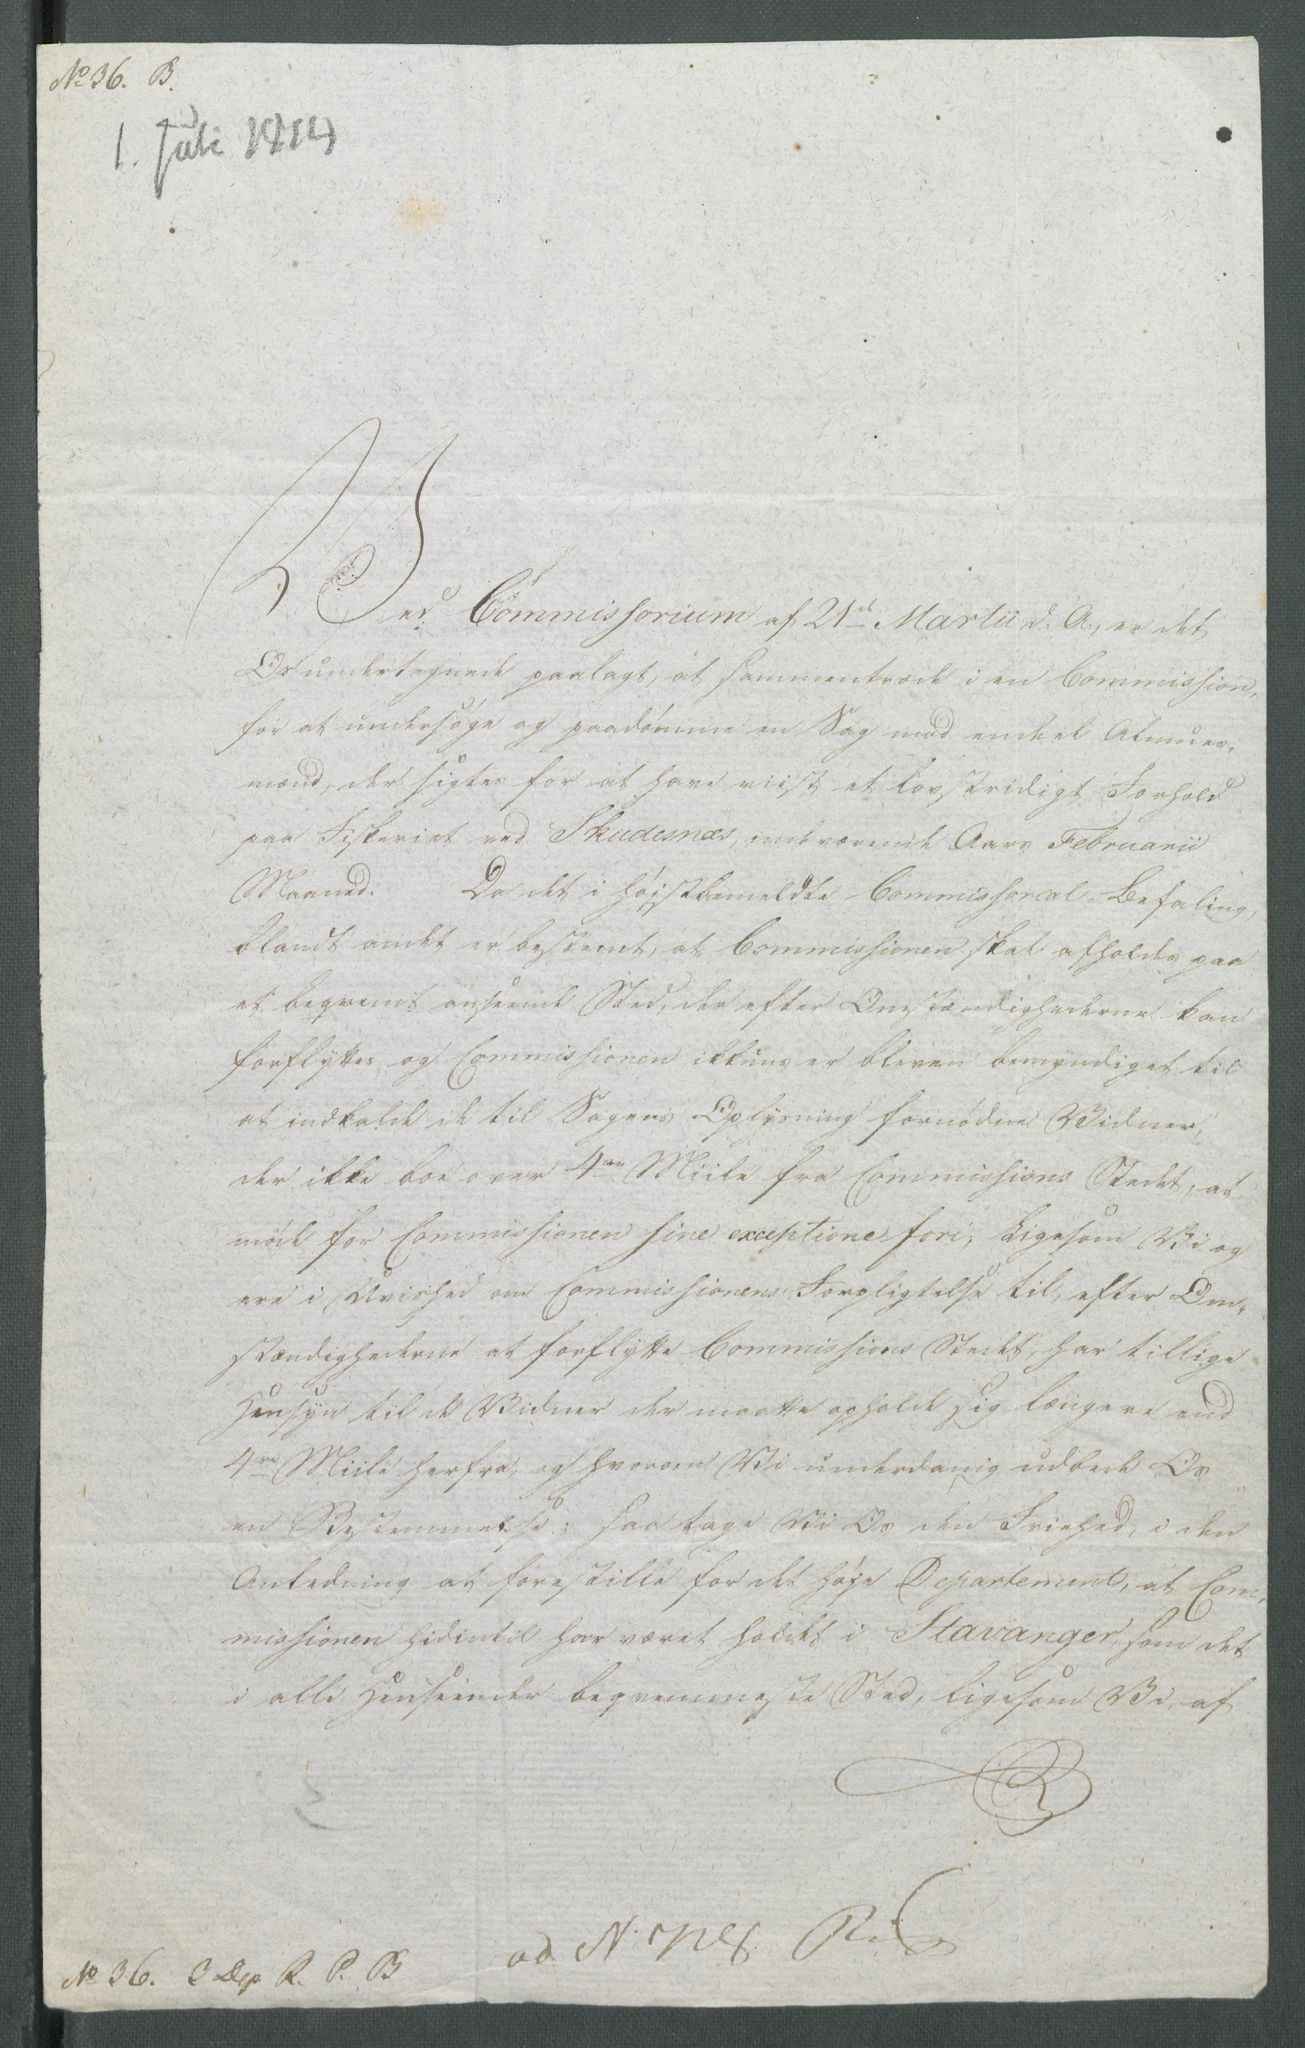 No 36. B.
1. Juli 1814
Ved Commissorium af 21de Martii d. A., er det
Os undertegnede paalagt, at sammentræde i en Commission,
for at undersøge og paadømme en Sag mod endeel Almues-
mænd, der sigtes for at have viist et lovstridigt Forhold
paa Fiskeriet ved Skudesnæs, indeværende Aars Februarii
Maaned. Da det i høistbemeldte Commissorial-Befaling,
blandt andet er bestemt, at Commissionen skal afholdes paa
et beqvemt anseende Sted, der efter Omstændighederne kan
forflyttes og Commissionen ikkuns er bleven bemyndiget til
at indkalde de til Sagens Oplysning fornødne Vidner,
der ikke boe over 4re Miile fra Commissions Stedet, at
møde for Commissionen sine exceptione fori; ligesom Vi og
ere i Uvished om Commissionens Forpligtelse til, efter Om-
stændighederne at forflytte Commissions Stedet, har tillige
Hensyn til de Vidner der maatte opholde sig længere end
4re Miile herfra, og hvorom Vi underdanig udbede Os
en Bestemmelse; saa tage Vi Os den Friehed, i den
Anledning at forestille for det høie Departement, at Com-
missionen hidindtil har været holdet i Stavanger, som det
i alle Henseender beqvemmeste Sted, ligesom Vi af
No 36. 3 Dep R. P. B
ad N.